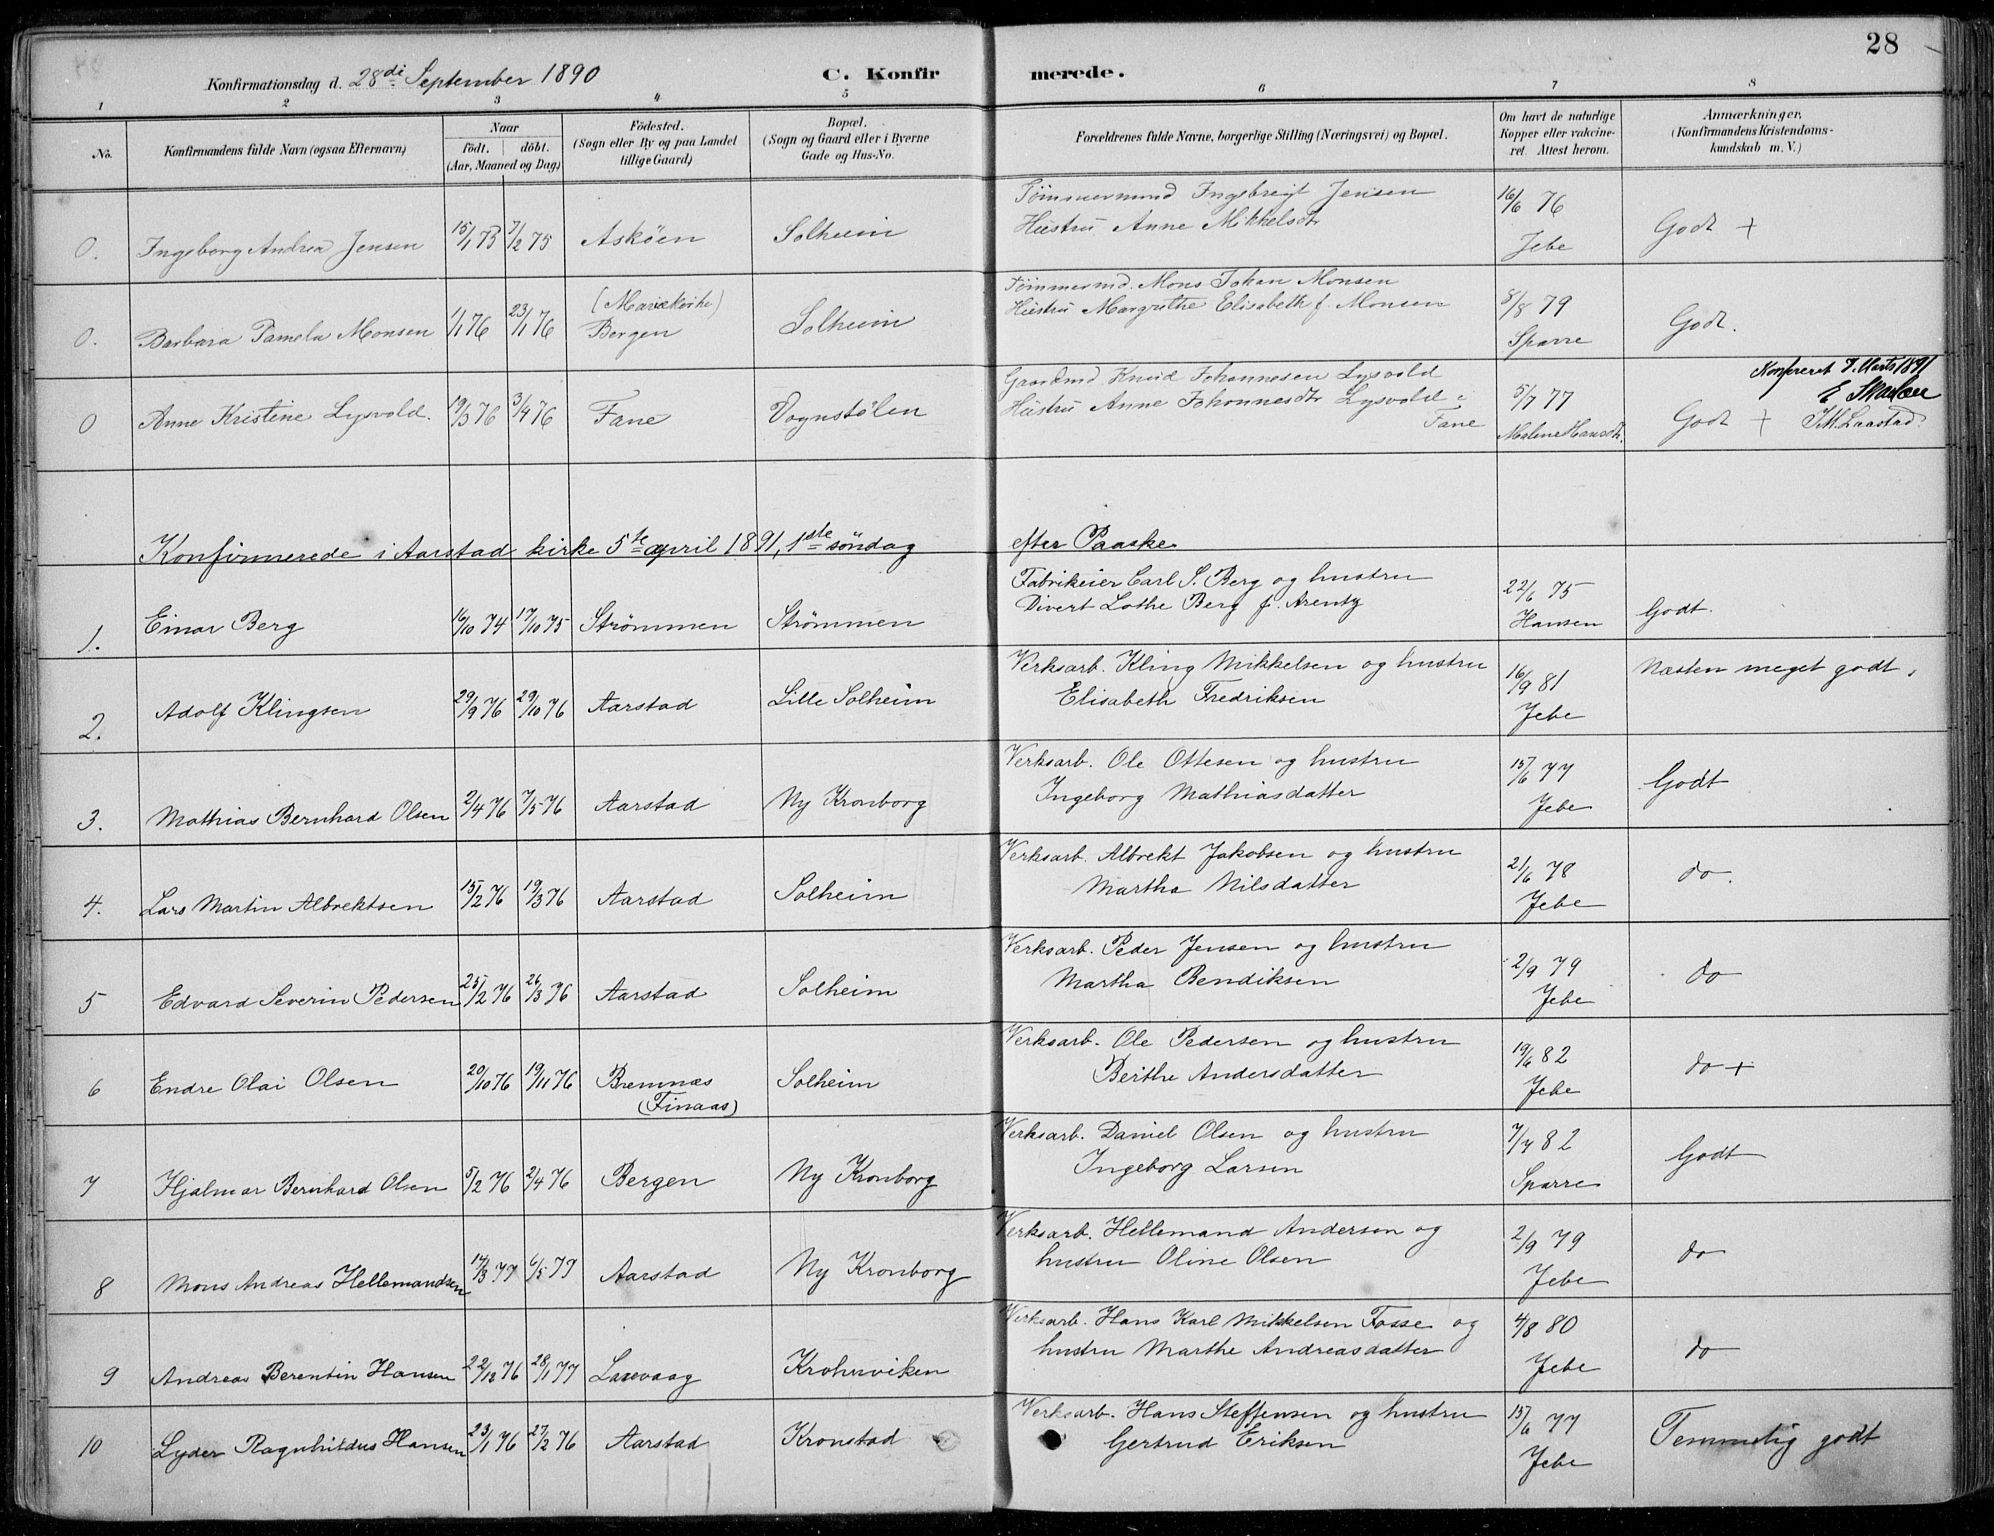 28
Konfirmationsdag d. 28de September 1890
C. Konfirmerede.
1 2 3 4 5 6 7 8
No.
Konfirmandens fulde Navn (ogsaa Efternavn)
Naar
födt. döbt.
(Aar, Maaned og Dag)
Födested.
(Sogn eller By og paa Landet
tillige Gaard)
Bopæl.
(Sogn og Gaard eller i Byerne
Gade og Hus-No.
Forældrenes fulde Navne, borgerlige Stilling (Næringsvei) og Bopæl.
Om havt de naturlige
Kopper eller vakcine-
ret. Attest herom.
Anmærkninger.
(Konfirmandens Kristendoms-
kundskab m. V.)
0. Ingeborg Andrea Jensen 15/1 75 7/2 75 Askøen Solheim
Tømmermand Ingebrigt Jensen
Hustru Anne Mikkelsdtr
16/6 76
Jebe
Godt +
0. Barbara Pamela Monsen 1/1 76 23/1 76 (Mariekirke)
Bergen Solheim
Tømmermd. Mons Johan Monsen
Hustru Margrethe Elisabeth f. Monsen
5/8 79
Sparre
Godt.
0 Anne Kristine Lysvold. 19/3 76 3/4 76 Fane Vognstølen
Gaardmd Knud Johannesen Lysvold
Hustru Anne Johannesdtr Lysvold i
Fane
5/7 77
Malene Hansdtr.
Godt +
Konfereret 7. Marts 1891
Konfirmerede i Aarstad kirke 5te april 1891, 1ste søndag efter Paaske
1. Einar Berg 16/10 74 17/10 75 Strømmen Strømmen
Fabrikeier Carl S. Berg og hustru
Divert Lothe Berg f. Arentz
22/6 75
Hansen
Godt.
2. Adolf Klingsen 29/9 76 29/10 76 Aarstad Lille Solheim
Verksarb. Kling Mikkelsen og hustru
Elisabeth Fredriksen
16/9 81
Jebe
Næsten meget godt.
3. Mathias Bernhard Olsen 2/4 76 7/5 76 Aarstad Ny Kronborg
Verksarb. Ole Ottesen og hustru
Ingeborg Mathiasdatter
15/6 77
Jebe
Godt
4. Lars Martin Albrektsen 15/2 76 19/3 76 Aarstad Solheim
Verksarb. Albrekt Jakobsen og hustru
Martha Nilsdatter
21/6 78
Jebe
do.
5 Edvard Severin Pedersen 25/2 76 26/3 76 Aarstad Solheim
Verksarb. Peder Jensen og hustru
Martha Bendiksen
2/9 79
Jebe
do
6 Endre Olai Olsen 20/10 76 19/11 76 Bremnæs
(Finaas) Solheim
Verksarb. Ole Pedersen og hustru
Berthe Andersdatter
19/6 82
Jebe
do +
7 Hjalmar Bernhard Olsen 5/2 76 2/4 76 Bergen Ny Kronborg
Verksarb. Daniel Olsen og hustru
Ingeborg Larsen
7/7 82
Sparre
Godt
8 Mons Andreas Hellemandsen 14/3 77 6/5 77 Aarstad Ny Kronborg
Verksarb. Hellemand Andersen og
hustru Oline Olsen
2/9 79
Jebe
do
9 Andreas Berentin Hansen 22/12 76 28/1 77 Laxevaag Krohnviken
Verksarb. Hans Karl Mikkelsen Fosse og
hustru Marthe Andreasdatter
4/8 80
Jebe
do
10 Lyder Ragnhildus Hansen 23/1 76 27/2 76 Aarstad Kronstad
Verksarb. Hans Steffensen og hustru
Gertrud Eriksen
15/6 77
Jebe
Temmelig godt